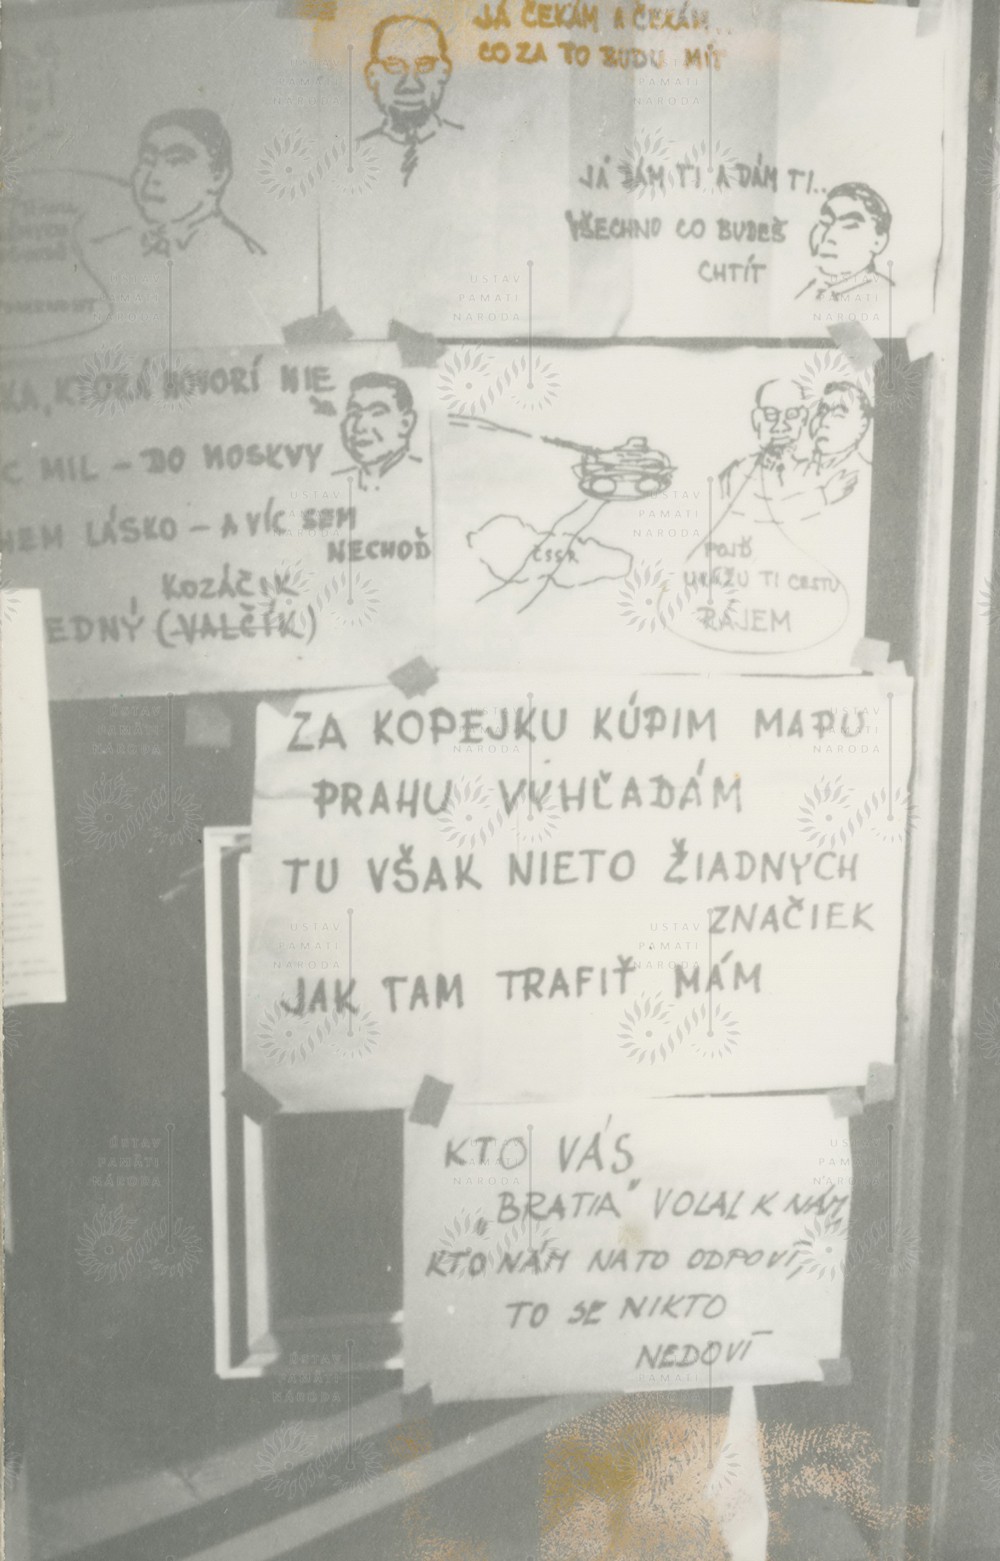 JÁ ČEKÁM A ČEKÁM..
CO ZA TO BUDU MÍT
JÁ DÁM TI A DÁM TI..
VŠECHNO CO BUDEŠ
CHTÍT
KTORÁ HOVORÍ NIE
C MIL - DO MOSKVY
LÁSKO - A VÍC SEM
NECHOĎ
KOZÁČIK
EDNÝ (VALČÍK)
ČSSR
POJĎ
UKÁŽU TI CESTU
RÁJEM
ZA KOPEJKU KÚPIM MAPU
PRAHU VYHĽADÁM
TU VŠAK NIETO ŽIADNYCH
ZNAČIEK
JAK TAM TRAFIŤ MÁM
KTO VÁS
„BRATIA" VOLAL K NÁM
KTO NÁM NA TO ODPOVÍ,
TO SE NIKTO
NEDOVÍ
ÚSTAV
PAMĚTI
NÁRODA